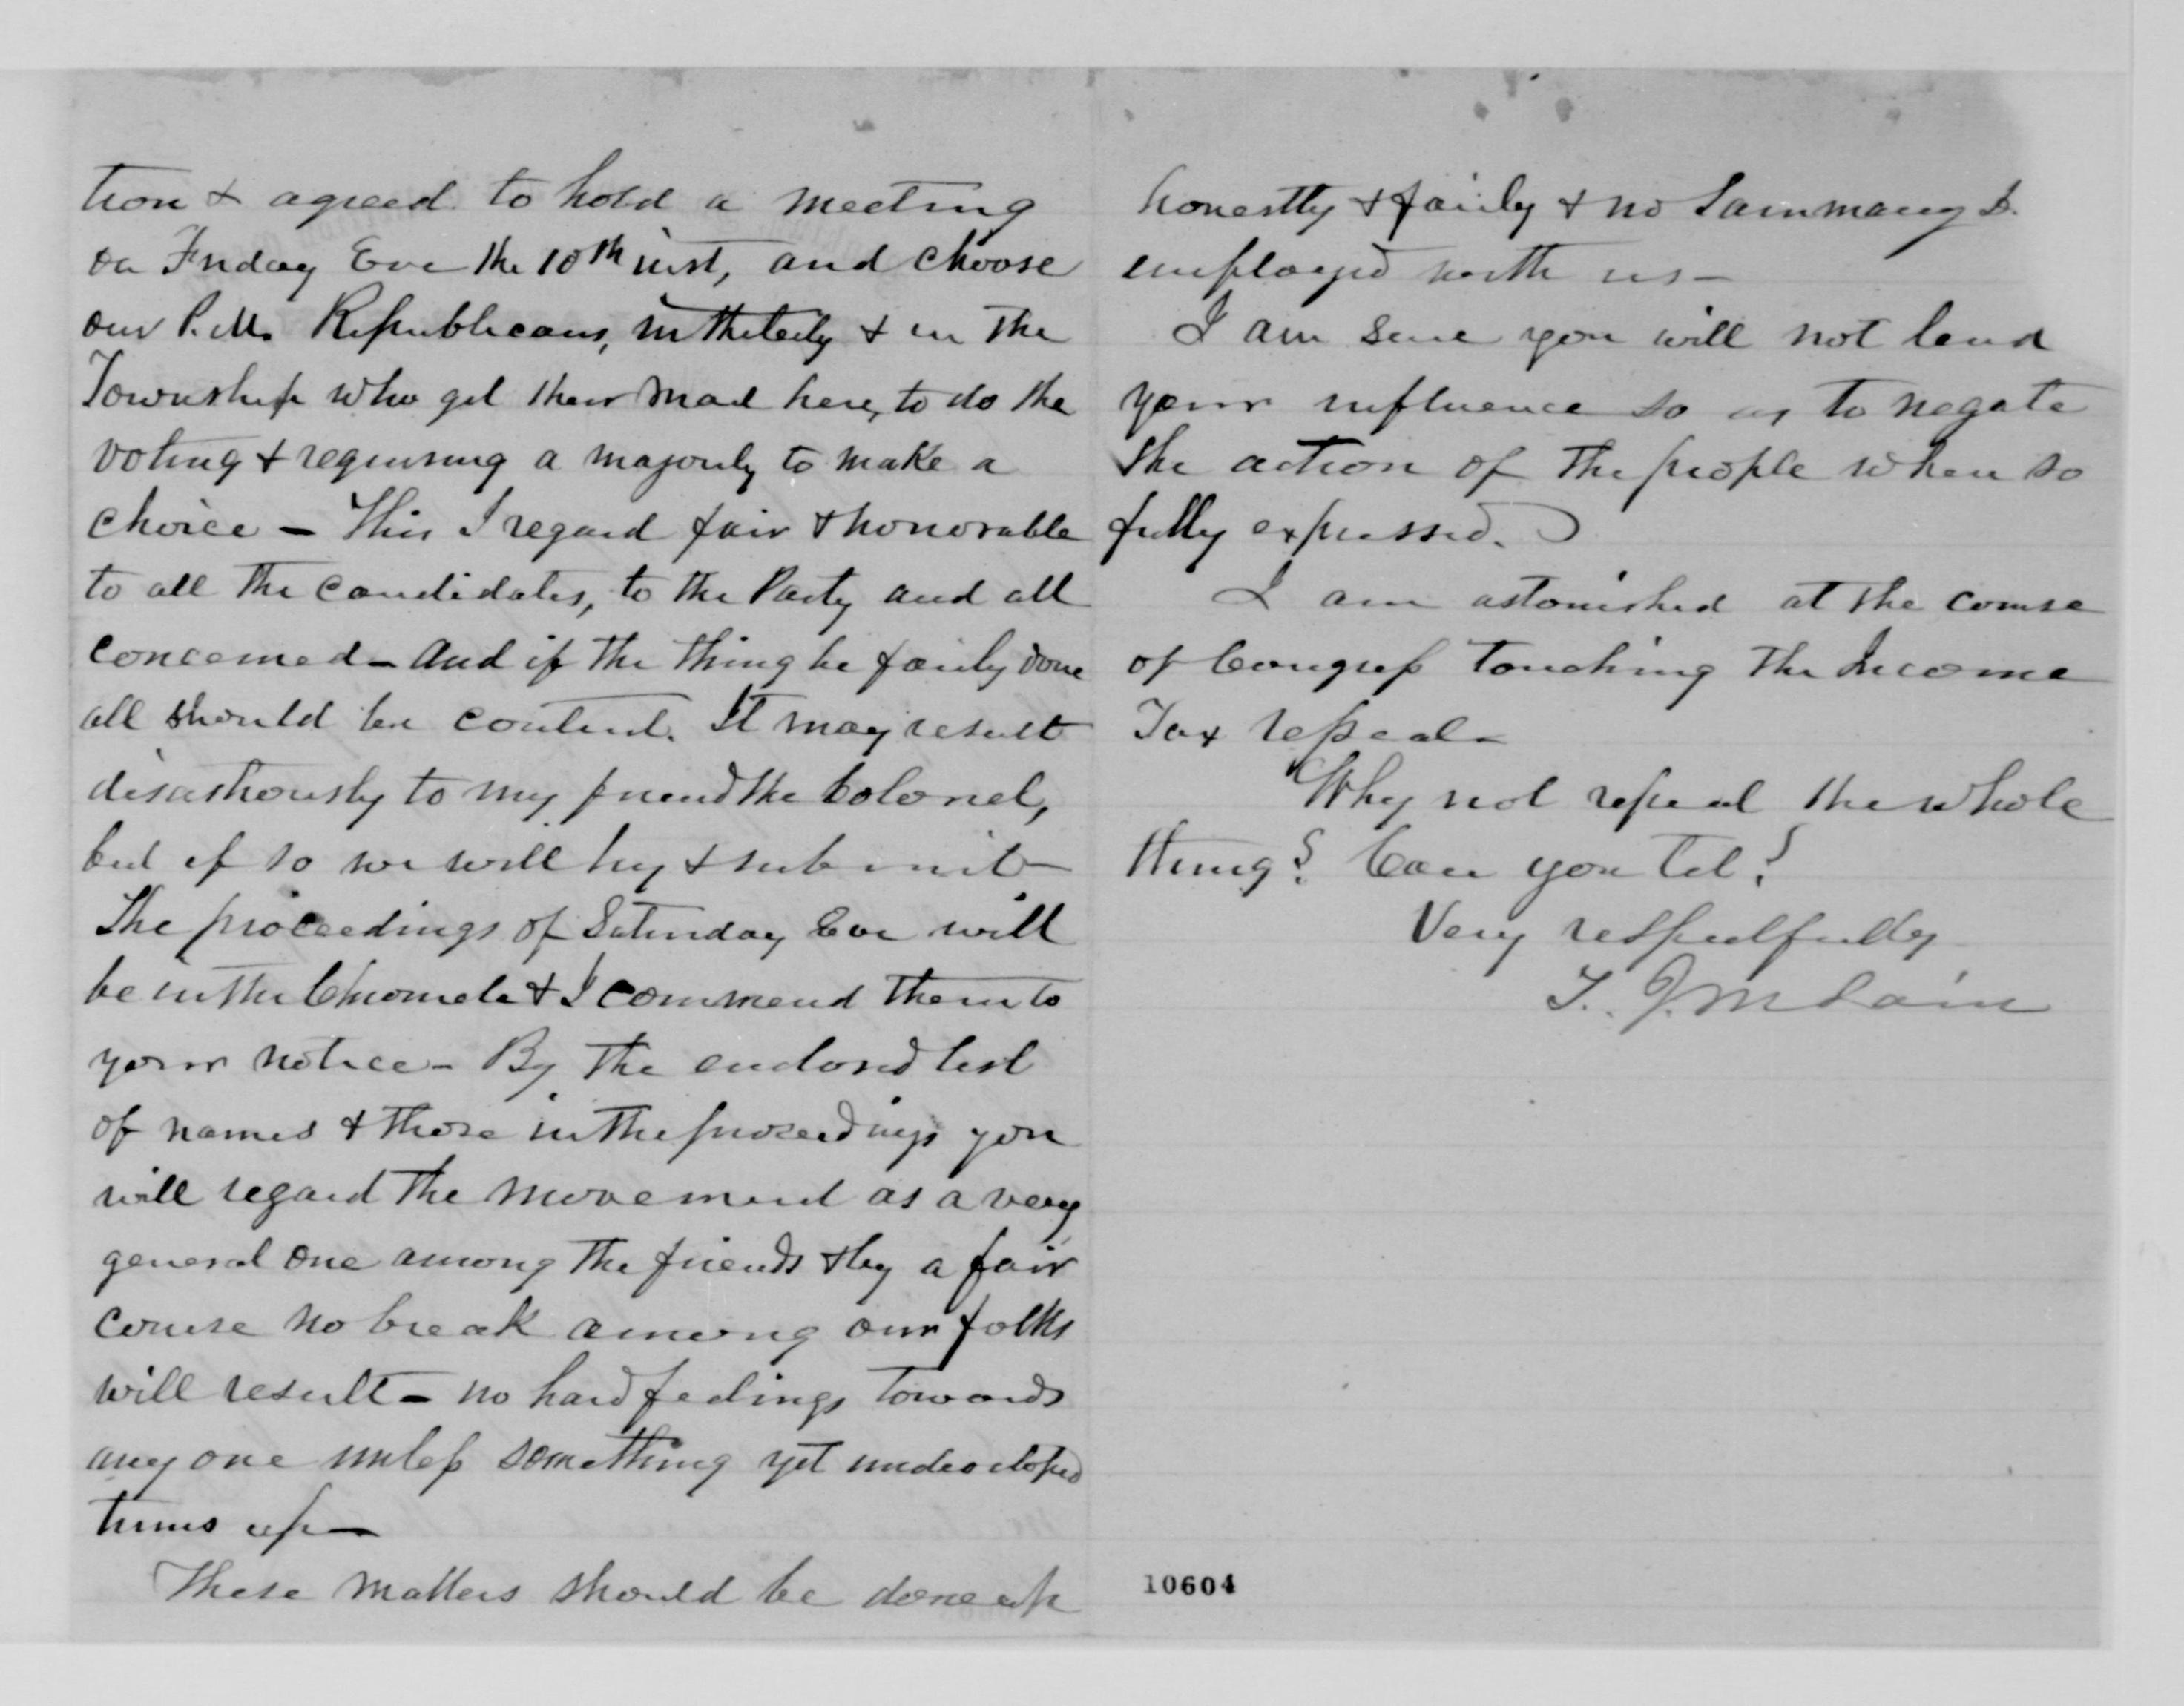 tion & agreed to hold a meeting
on Friday Eve the 10th inst, and choose
our P.M. Republicans, in the City & in the
Township who get their mail here, to do the
voting & requiring a majority to make a
choice – This I regard fair & honorable
to all the candidates, to the Party and all
concerned – And if the thing be fairly done
all should be content. It may result
disastrously to my friend the Colonel,
but if so we will try & submit –
The proceedings of Saturday Eve will
be in the Chronicle & I commend them to
your notice – By the enclosed list
of names & those in the proceedings you
will regard the movement as a very
general one among the friends & by a fair
course no break among our folks
will result – no hard feelings towards
any one unless something yet undeveloped
turns up –
These matters should be done up
honestly & fairly & no
employed with us –
I am sure you will not lend
your influence so as to negate
the action of the people when so
fully expressed.
I am astonished at the course
of Congress touching the Income
Tax repeal –
Why not repeal the whole
thing? Can you tel?
Very respectfully
T. J. McLain
10604